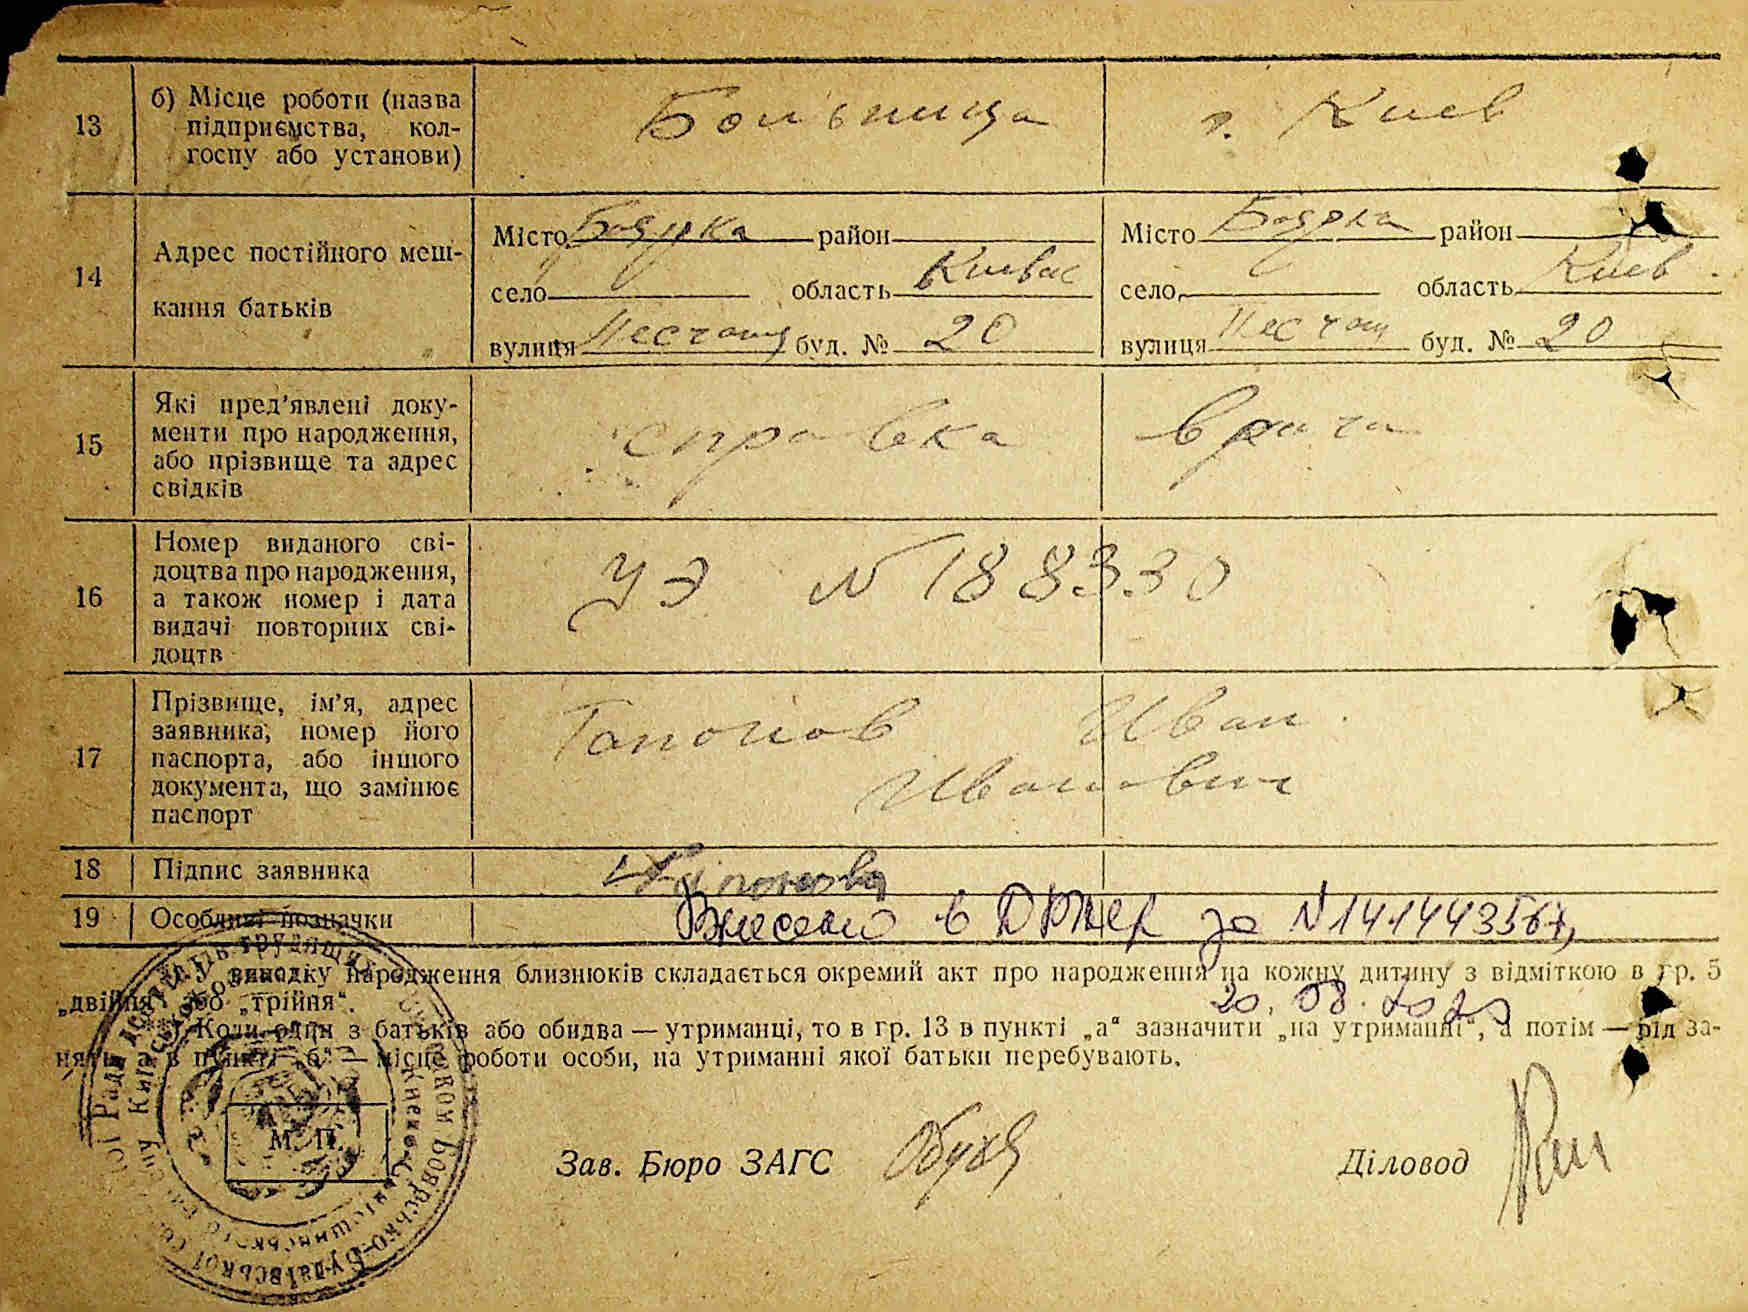 13 б) Місце роботи (назва
підприємства, кол-
госпу або установи)
Больница г. Киев
14 Адрес постійного меш-
кання батьків
Місто Боярка район
село область Киевс
вулиця Песчан буд. № 20
Місто Боярка район
село область Киев
вулиця Песчан буд. № 20
15 Які пред'явлені доку-
менти про народження,
або прізвище та адрес
свідків
справка врача
16 Номер виданого сві-
доцтва про народження,
а також номер і дата
видачі повторних сві-
доцтв
УЭ № 188330
17 Прізвище, ім'я, адрес
заявника, номер його
паспорта, або іншого
документа, що замінює
паспорт
Гапонов Иван
Иванович
18 Підпис заявника
19 Особливі позначки
Внесено в за N141443567,
випадку народження близнюків складається окремий акт про народження на кожну дитину з відміткою в гр. 5
„двійня" або „трійня".
20.08.
Коли один з батьків або обидва — утриманці, то в гр. 13 в пункті „а" зазначити „на утриманні", а потім — рід за-
няття, а в пункті „б" — місце роботи особи, на утриманні якої батьки перебувають.
М. П.
Зав. Бюро ЗАГС
Діловод